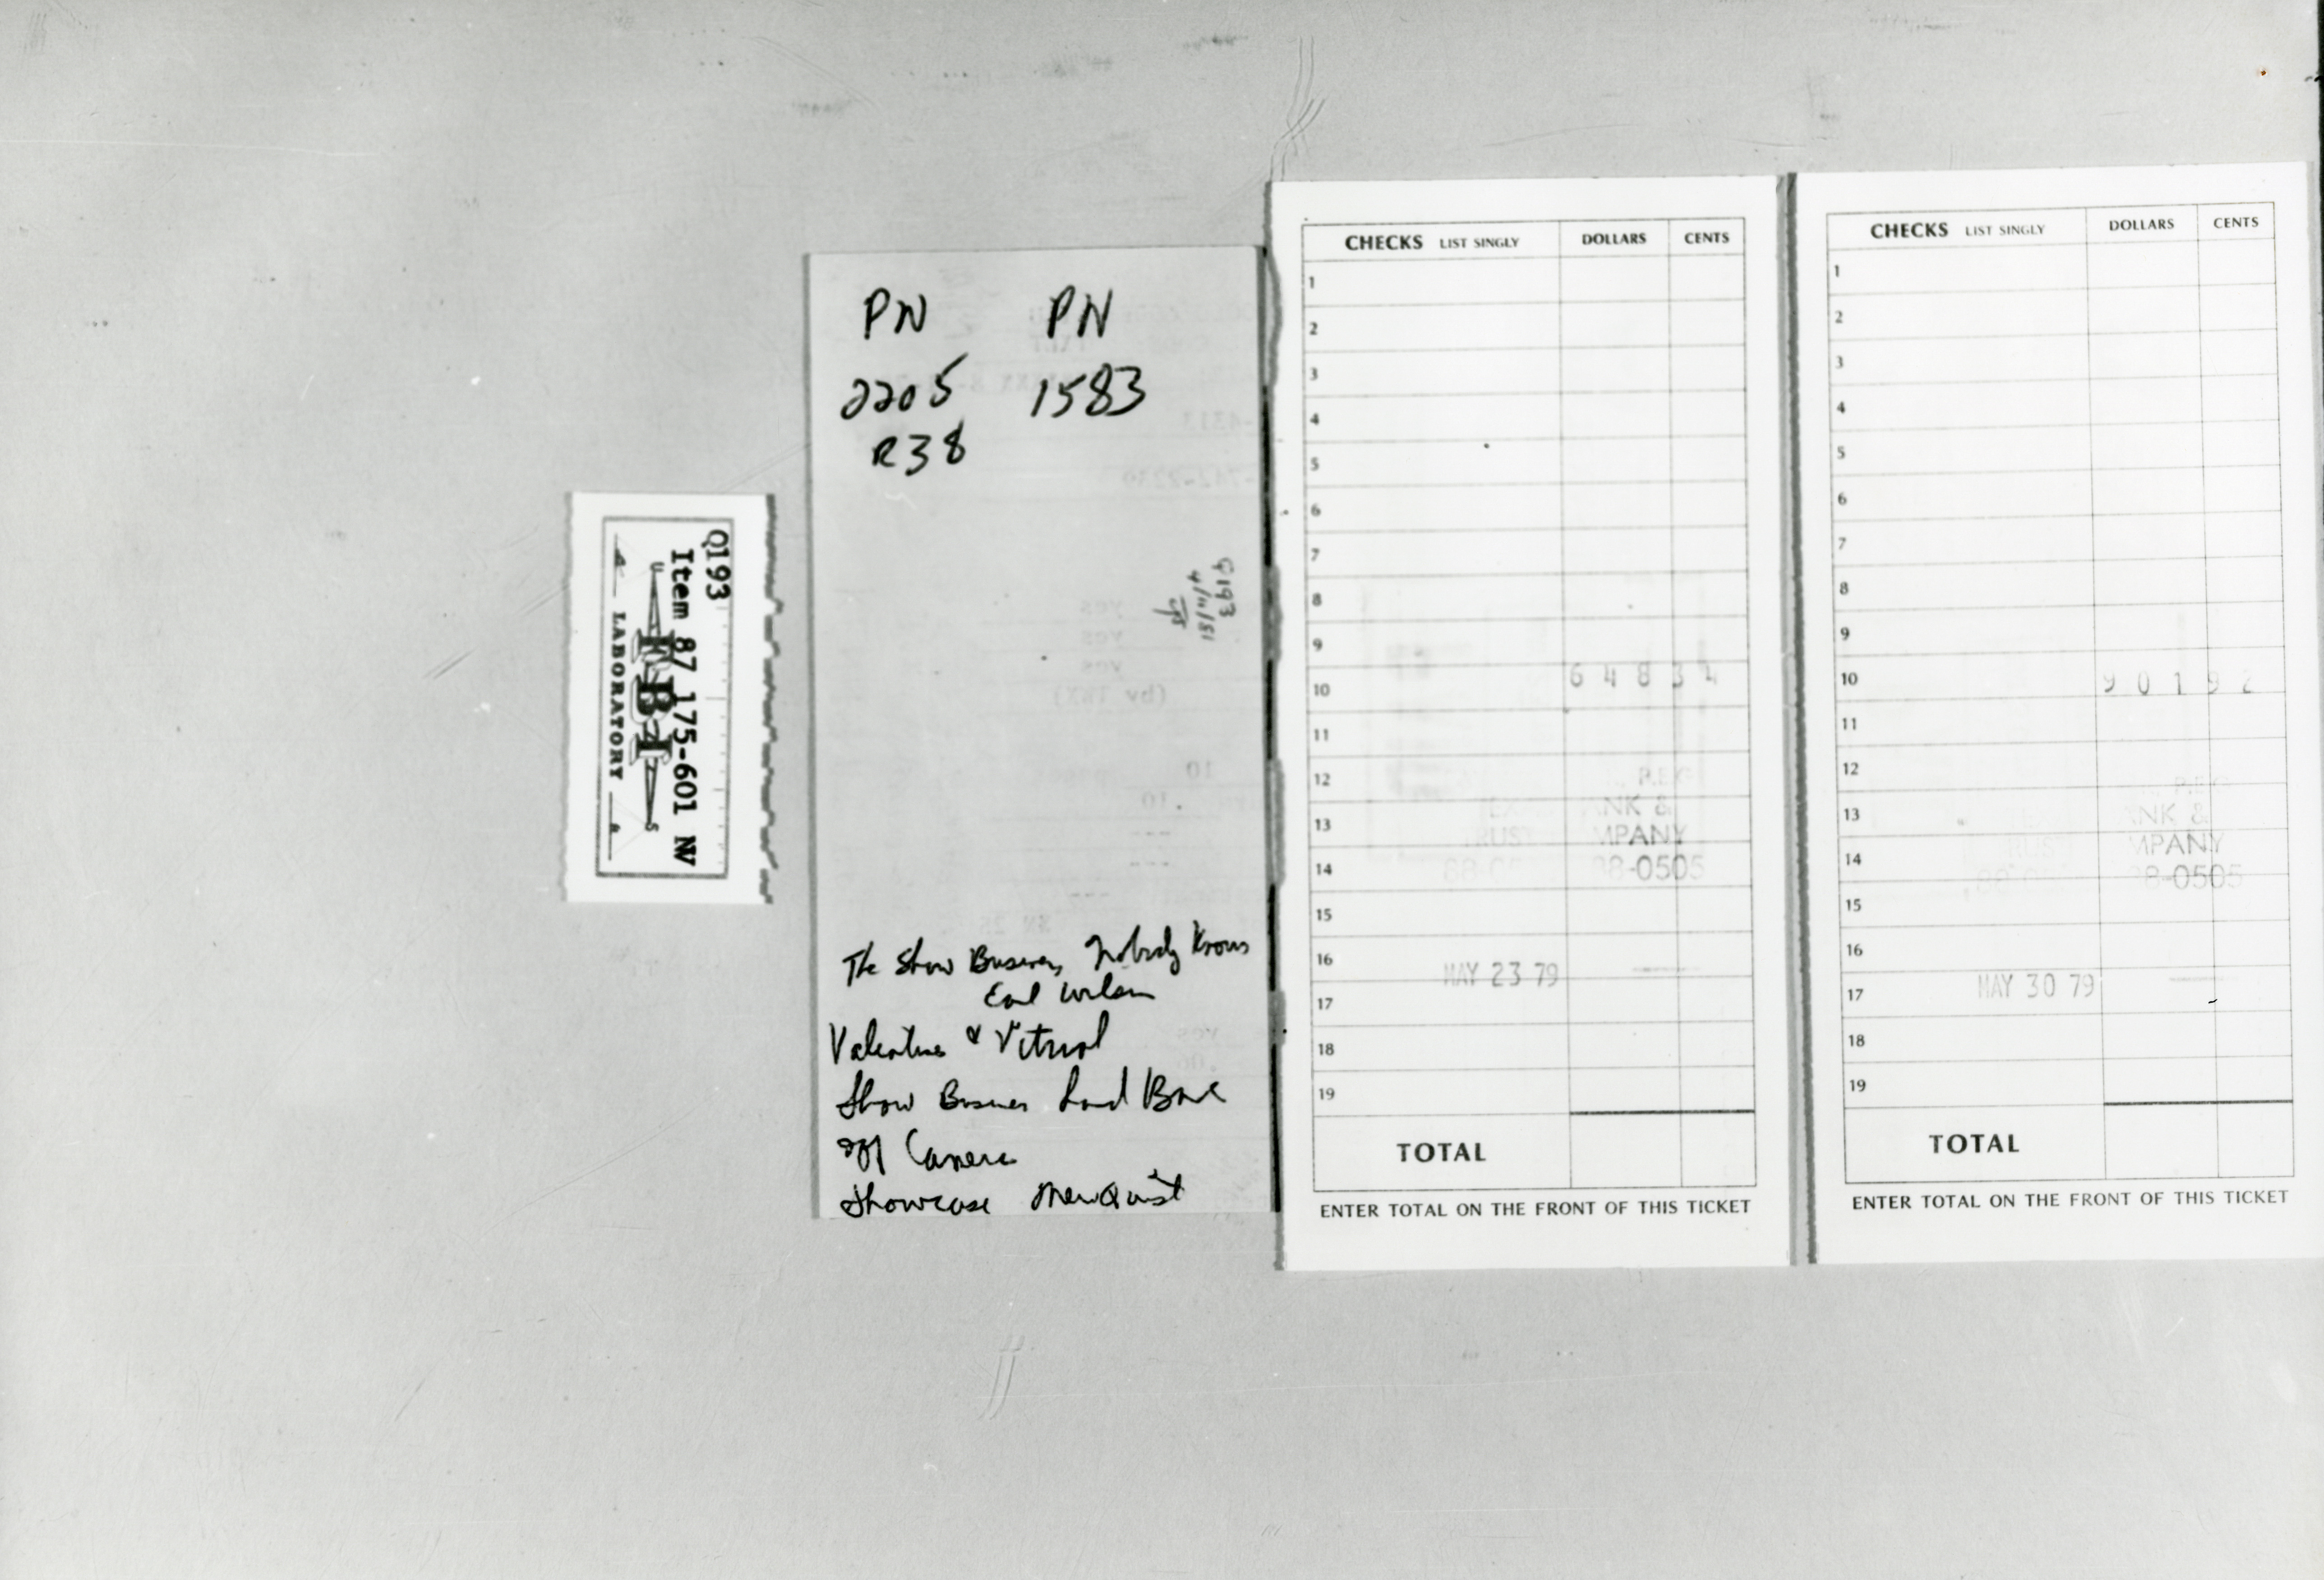 Q193
Item 87 175-601 NW
FBI
LABORATORY
PN PN
2205 1583
R38
Q193
4/11/81
The Show Business Nobody Knows
Earl Wilson
Valentines & Vitriol
Show Business Laid Bare
Off Camera
Showcase Newquist
CHECKS LIST SINGLY DOLLARS CENTS
1
2
3
4
5
6
7
8
9
10 6 4 8 3 4
11
12
13 NK &
MPANY
14 8-0505
15
16 MAY 23 79
17
18
19
TOTAL
ENTER TOTAL ON THE FRONT OF THIS TICKET
CHECKS LIST SINGLY DOLLARS CENTS
1
2
3
4
5
6
7
8
9
10 9 0 1 9 2
11
12
13 ANK &
MPANY
14 8-0505
15
16
17 MAY 30 79
18
19
TOTAL
ENTER TOTAL ON THE FRONT OF THIS TICKET